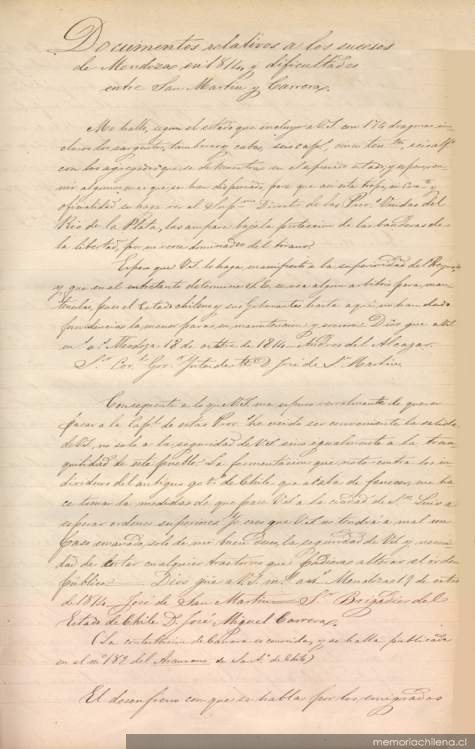 Documentos relativos a los sucesos
de Mendoza en 1814, y dificultades
entre San Martin y Carrera.
Me hallo, segun el estado que incluyo a V.S. con 174 dragones in-
clusos los sargentos, tambores y cabos, seis
con los agregados que se demuestran en el espresado estado, y
algunos mas que se han dispersado, para que
oficialidad se haga ver al Director de las Prov. Unidas del
Rio de la Plata, las ampare bajo la proteccion de las banderas de
la libertad, por no verse dominados del tirano.
Espero que V.S. lo haga manifiesto a la superioridad del
y que en el entretanto determine se les busque algun arbitrio para man-
tenerlos, pues el Estado chileno y sus Gobernantes hasta aquí no han dado
providencias la menor para su manutencion y socorro. Dios gue a V.S.
m.s a.s Mendoza 18 de octbre de 1814. Andres del Alcazar.
S.r Cor.l Gov.r Intendente D. José de S.n Martin
Consiguiente a lo que V.S. me espuso verbalmente de querer
pasar a la Cap.l de estas Prov. he creido ser conveniente la salida
de V.S. no solo a la seguridad de V.S. sino igualmente a la tran-
quilidad de este pueblo. La fermentacion que noto contra los in-
dividuos del antiguo go.no de Chile que acaba de fenecer, me ha-
ce tomar la medida de que pase V.S. a la ciudad de S.n Luis a
esperar ordenes superiores. Yo creo que V.S. no tendrá a mal este
paso emanado solo de mi buen deseo, la seguridad de V.S. y necesi-
dad de cortar cualquier trastorno que pudiera alterar el órden
público. Dios gue a V.S. m.s an.s Mendoza 19 de octbre
de 1814. José de San Martin S.r Brigadier del
Estado de Chile D. José Miguel Carrera.
(La contestacion de Carrera es conocida, y se halla publicada
en el nº 182 del Araucano de Sant.o de Chile)
El desenfreno con que se habla por los emigrados
memoriachilena.cl